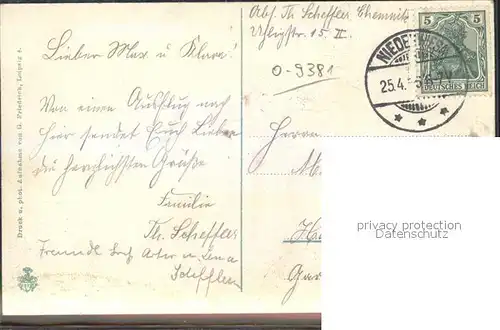 Abs. Th. Scheffler Chemnitz
Uhligstr. 15 II.
O-9381
NIEDER
25.4.
5 5
DEUTSCHES REICH
Lieber Max u. Klara!
Von einem Ausflug nach
hier sendet Euch Lieben
die herzlichsten Grüße
Familie
Th. Scheffler
Freundl.
Scheffler
Herrn
Druck u. phot. Aufnahme von G. Friedrich, Leipzig
privacy protection
Datenschutz